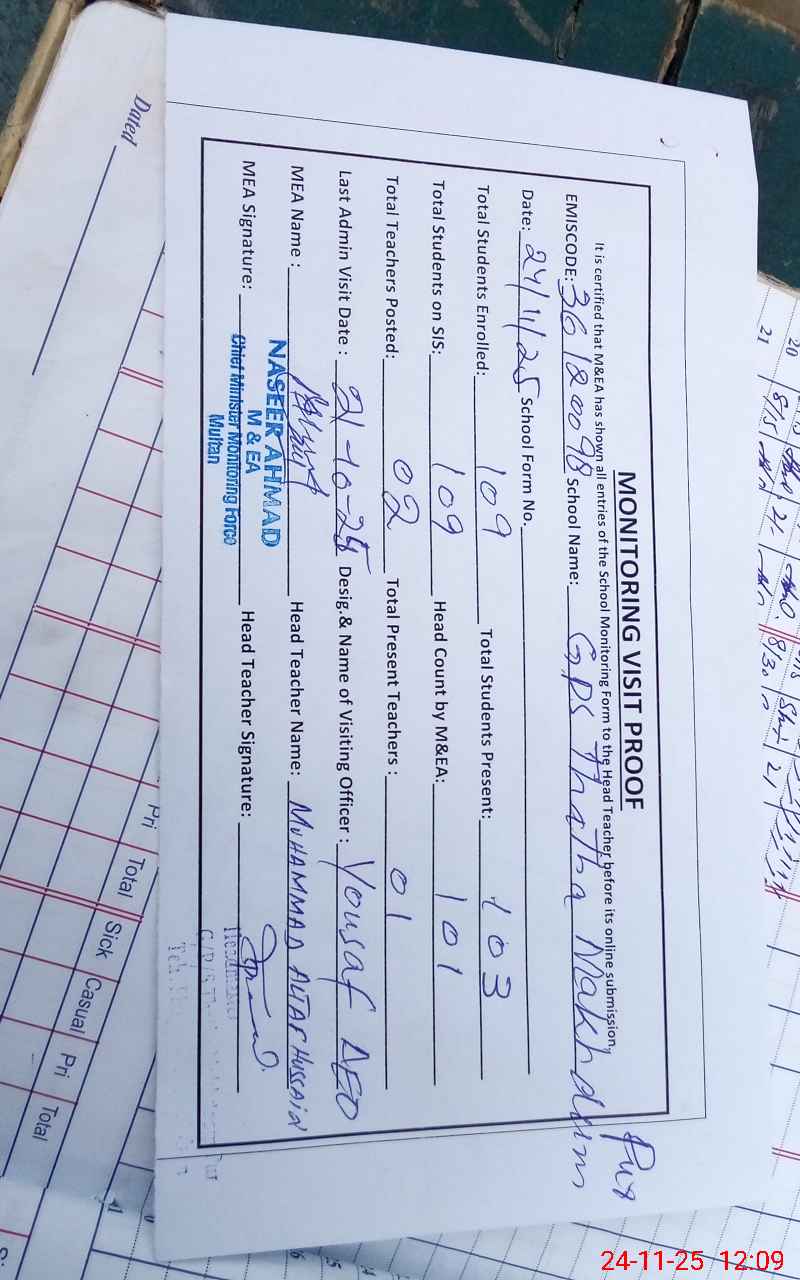 MONITORING VISIT PROOF
It is certified that M&EA has shown all entries of the School Monitoring Form to the Head Teacher before its online submission.
EMISCODE: 36120098 School Name: GPS Thatha Makhdum Pur
Date: 24/11/25 School Form No.
Total Students Enrolled: 109 Total Students Present: 103
Total Students on SIS: 109 Head Count by M&EA: 101
Total Teachers Posted: 02 Total Present Teachers : 01
Last Admin Visit Date : 21-10-25 Desig.& Name of Visiting Officer : Yousaf AEO
MEA Name : Head Teacher Name: MUHAMMAD ALTAF HUSSAIN
MEA Signature: Head Teacher Signature:
NASEER AHMAD
M & EA
Chief Minister Monitoring Force
Multan
Dated
Pri Total Sick Casual Pri Total
20
21
24-11-25 12:09